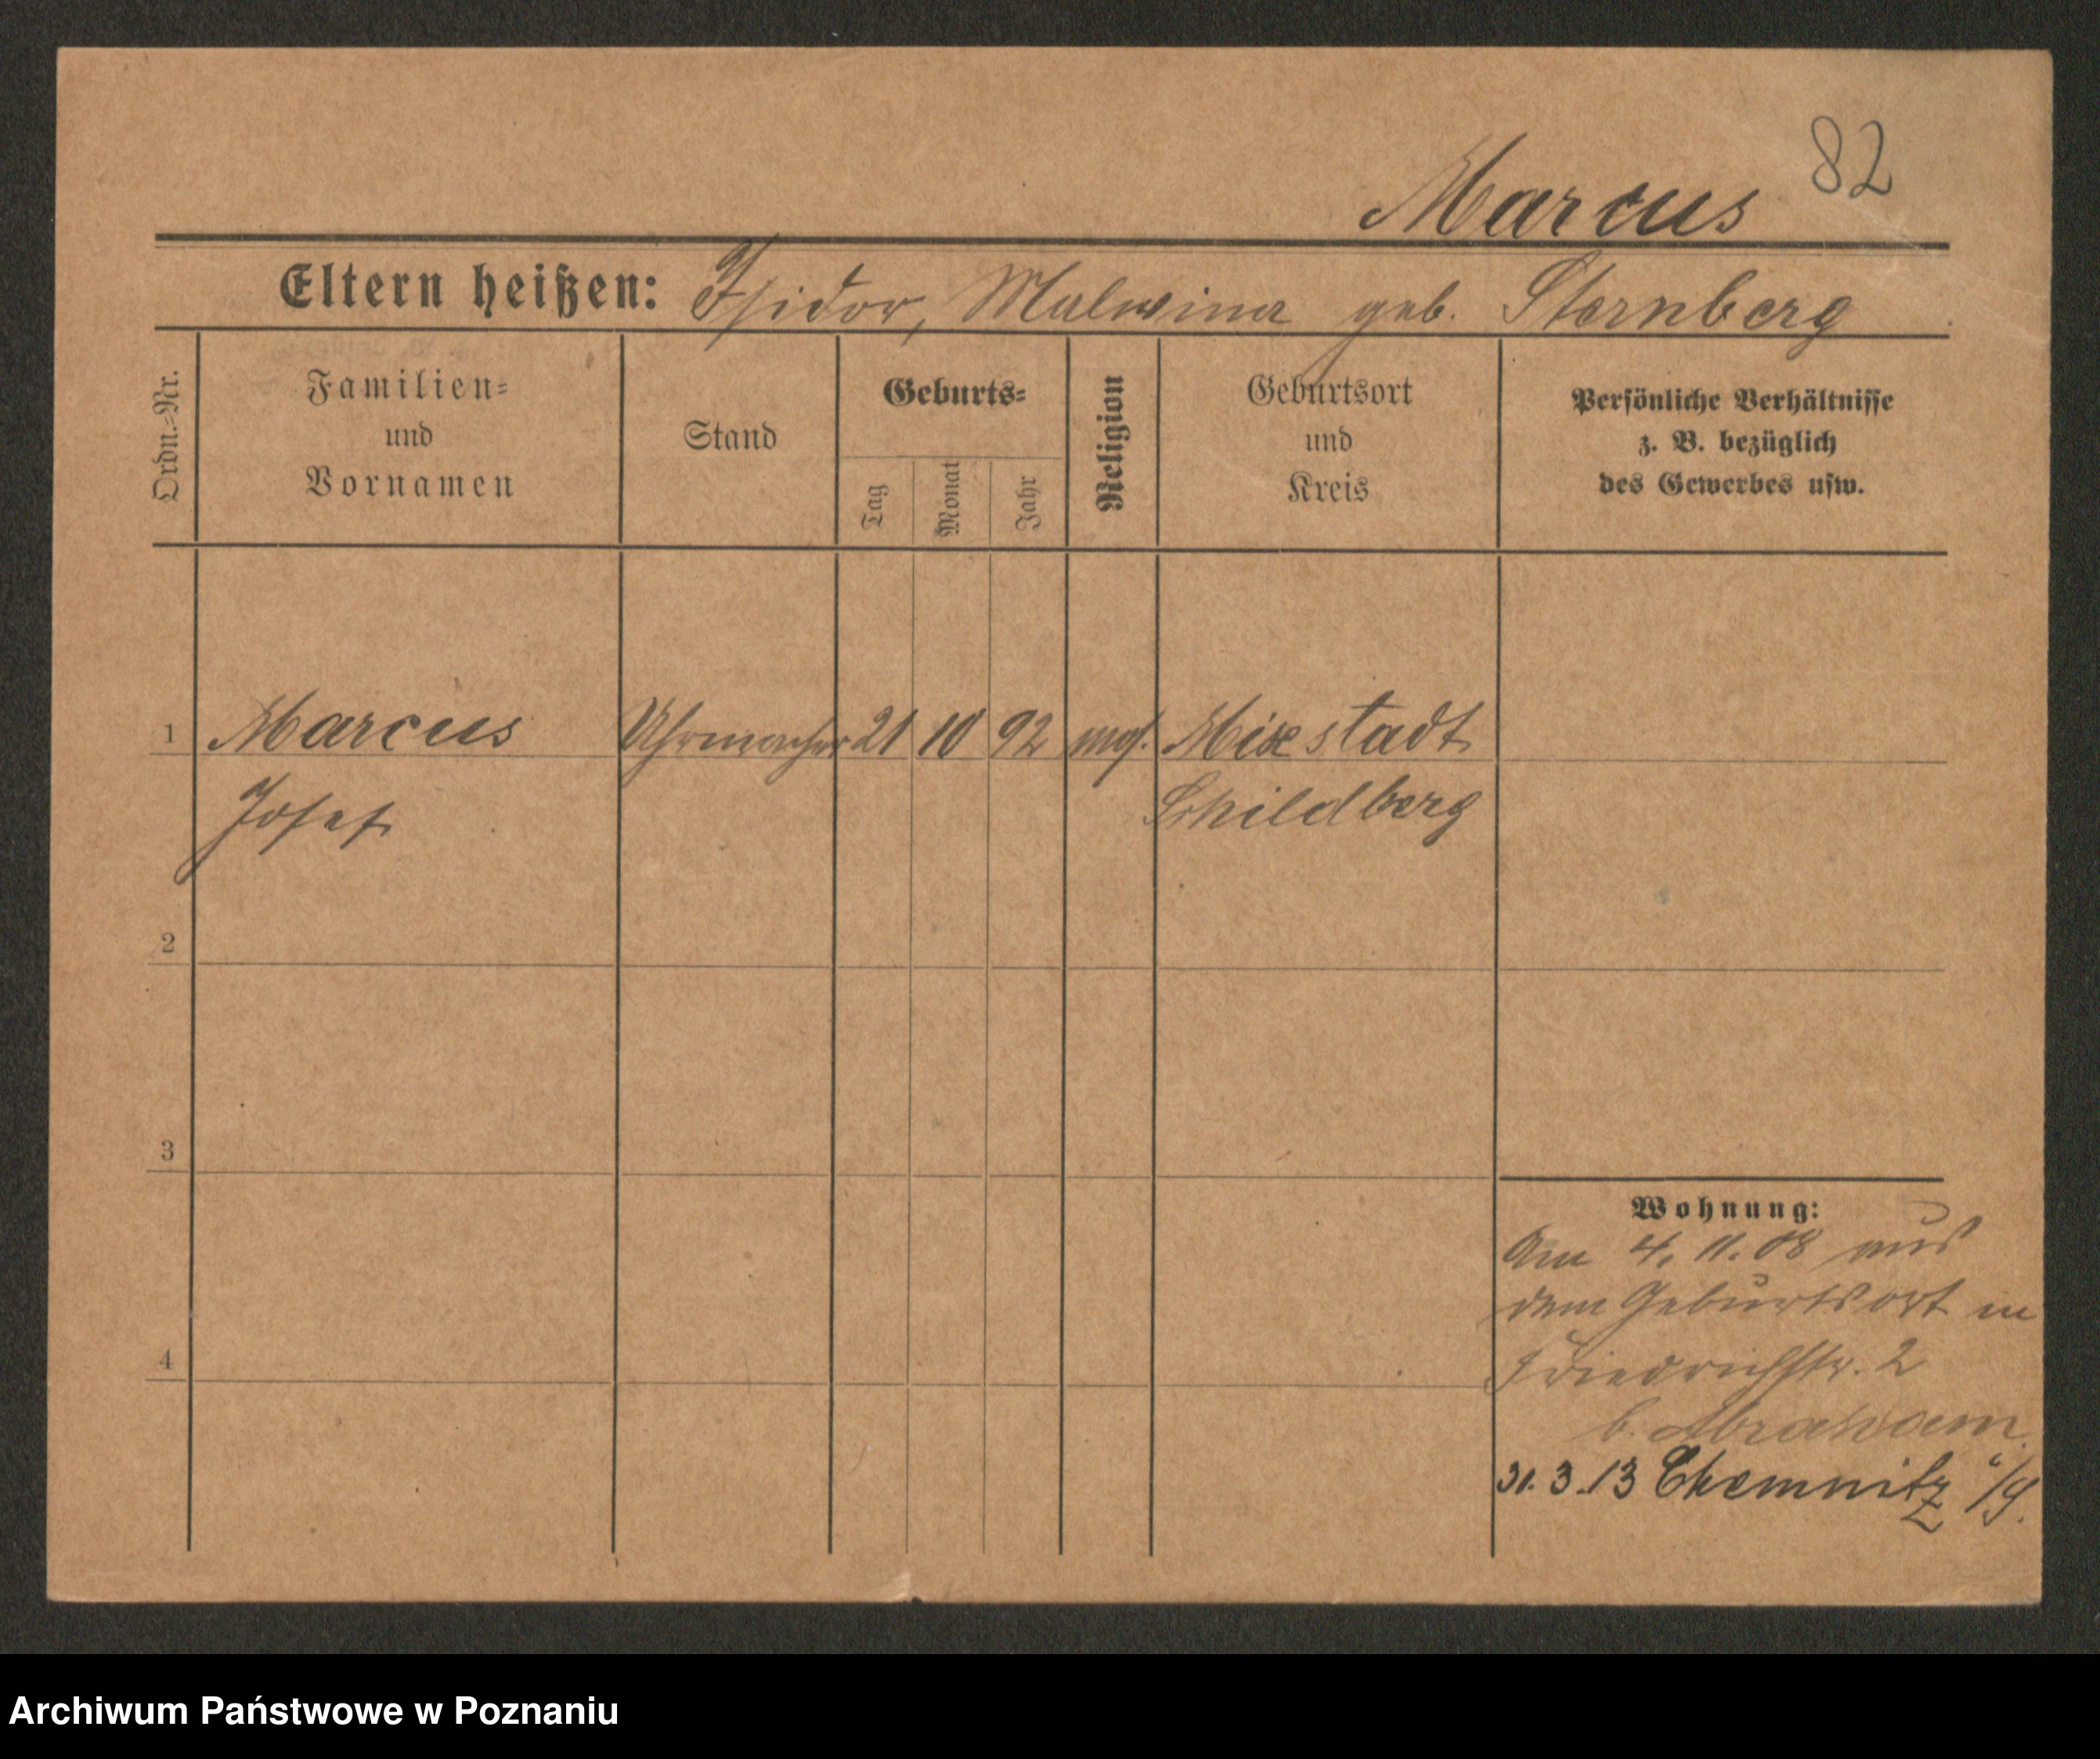 82
Marcus
Eltern heißen: Isidor, Malwina geb. Sternberg
Ordn.=Nr.
Familien=
und
Vornamen
Stand
Geburts=
Tag
Monat
Jahr
Religion
Geburtsort
und
Kreis
Persönliche Verhältnisse
z. B. bezüglich
des Gewerbes usw.
1 Marcus Uhrmacher 21 10 92 mos. Mixstadt
Josef Schildberg
2
3
4
Wohnung:
Am 4. 11. 08 aus
dem Geburtsort in
Friedrichstr. 2
b. Abraham
31. 3. 13 Chemnitz i/S.
Archiwum Państwowe w Poznaniu